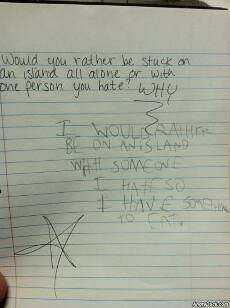 Would you rather be stuck on
an island all alone or with
one person you hate?
WHY
I WOULD RATHER
BE ON AN ISLAND
WITH SOMEONE
I HATE SO
I HAVE SOMETHING
TO EAT.